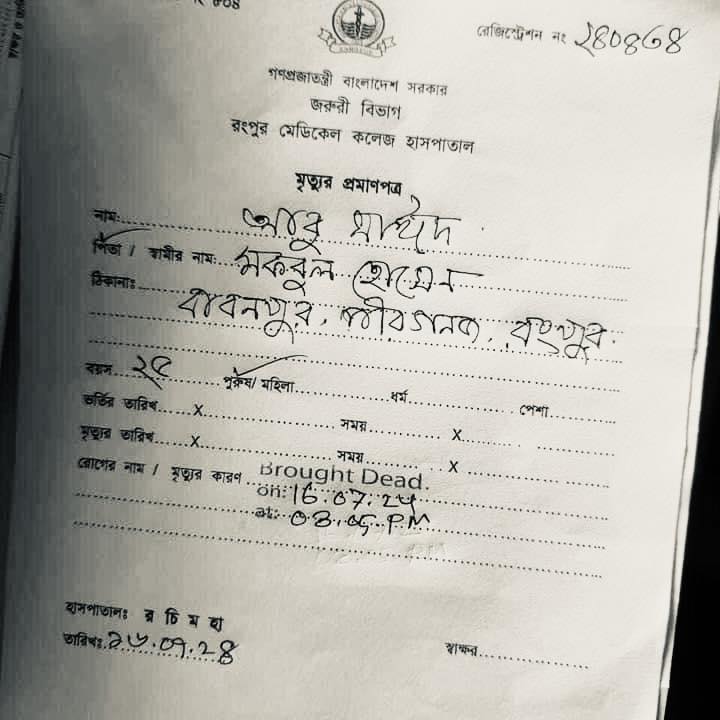 রেজিস্ট্রেশন নং ২৪০৪৬৪
গণপ্রজাতন্ত্রী বাংলাদেশ সরকার
জরুরী বিভাগ
রংপুর মেডিকেল কলেজ হাসপাতাল
মৃত্যুর প্রমাণপত্র
নাম: আবু সাঈদ
পিতা / স্বামীর নাম: মকবুল হোসেন
ঠিকানাঃ বাবনপুর, পীরগনজ, রংপুর
বয়স ২৫ পুরুষ/মহিলা ধর্ম পেশা
ভর্তির তারিখ X সময় X
মৃত্যুর তারিখ X সময় X
রোগের নাম / মৃত্যুর কারণ Brought Dead.
on: 16.07.24
at: 03.05 PM
হাসপাতালঃ র চি ম হা
তারিখঃ ১৬.০৭.২৪ স্বাক্ষর